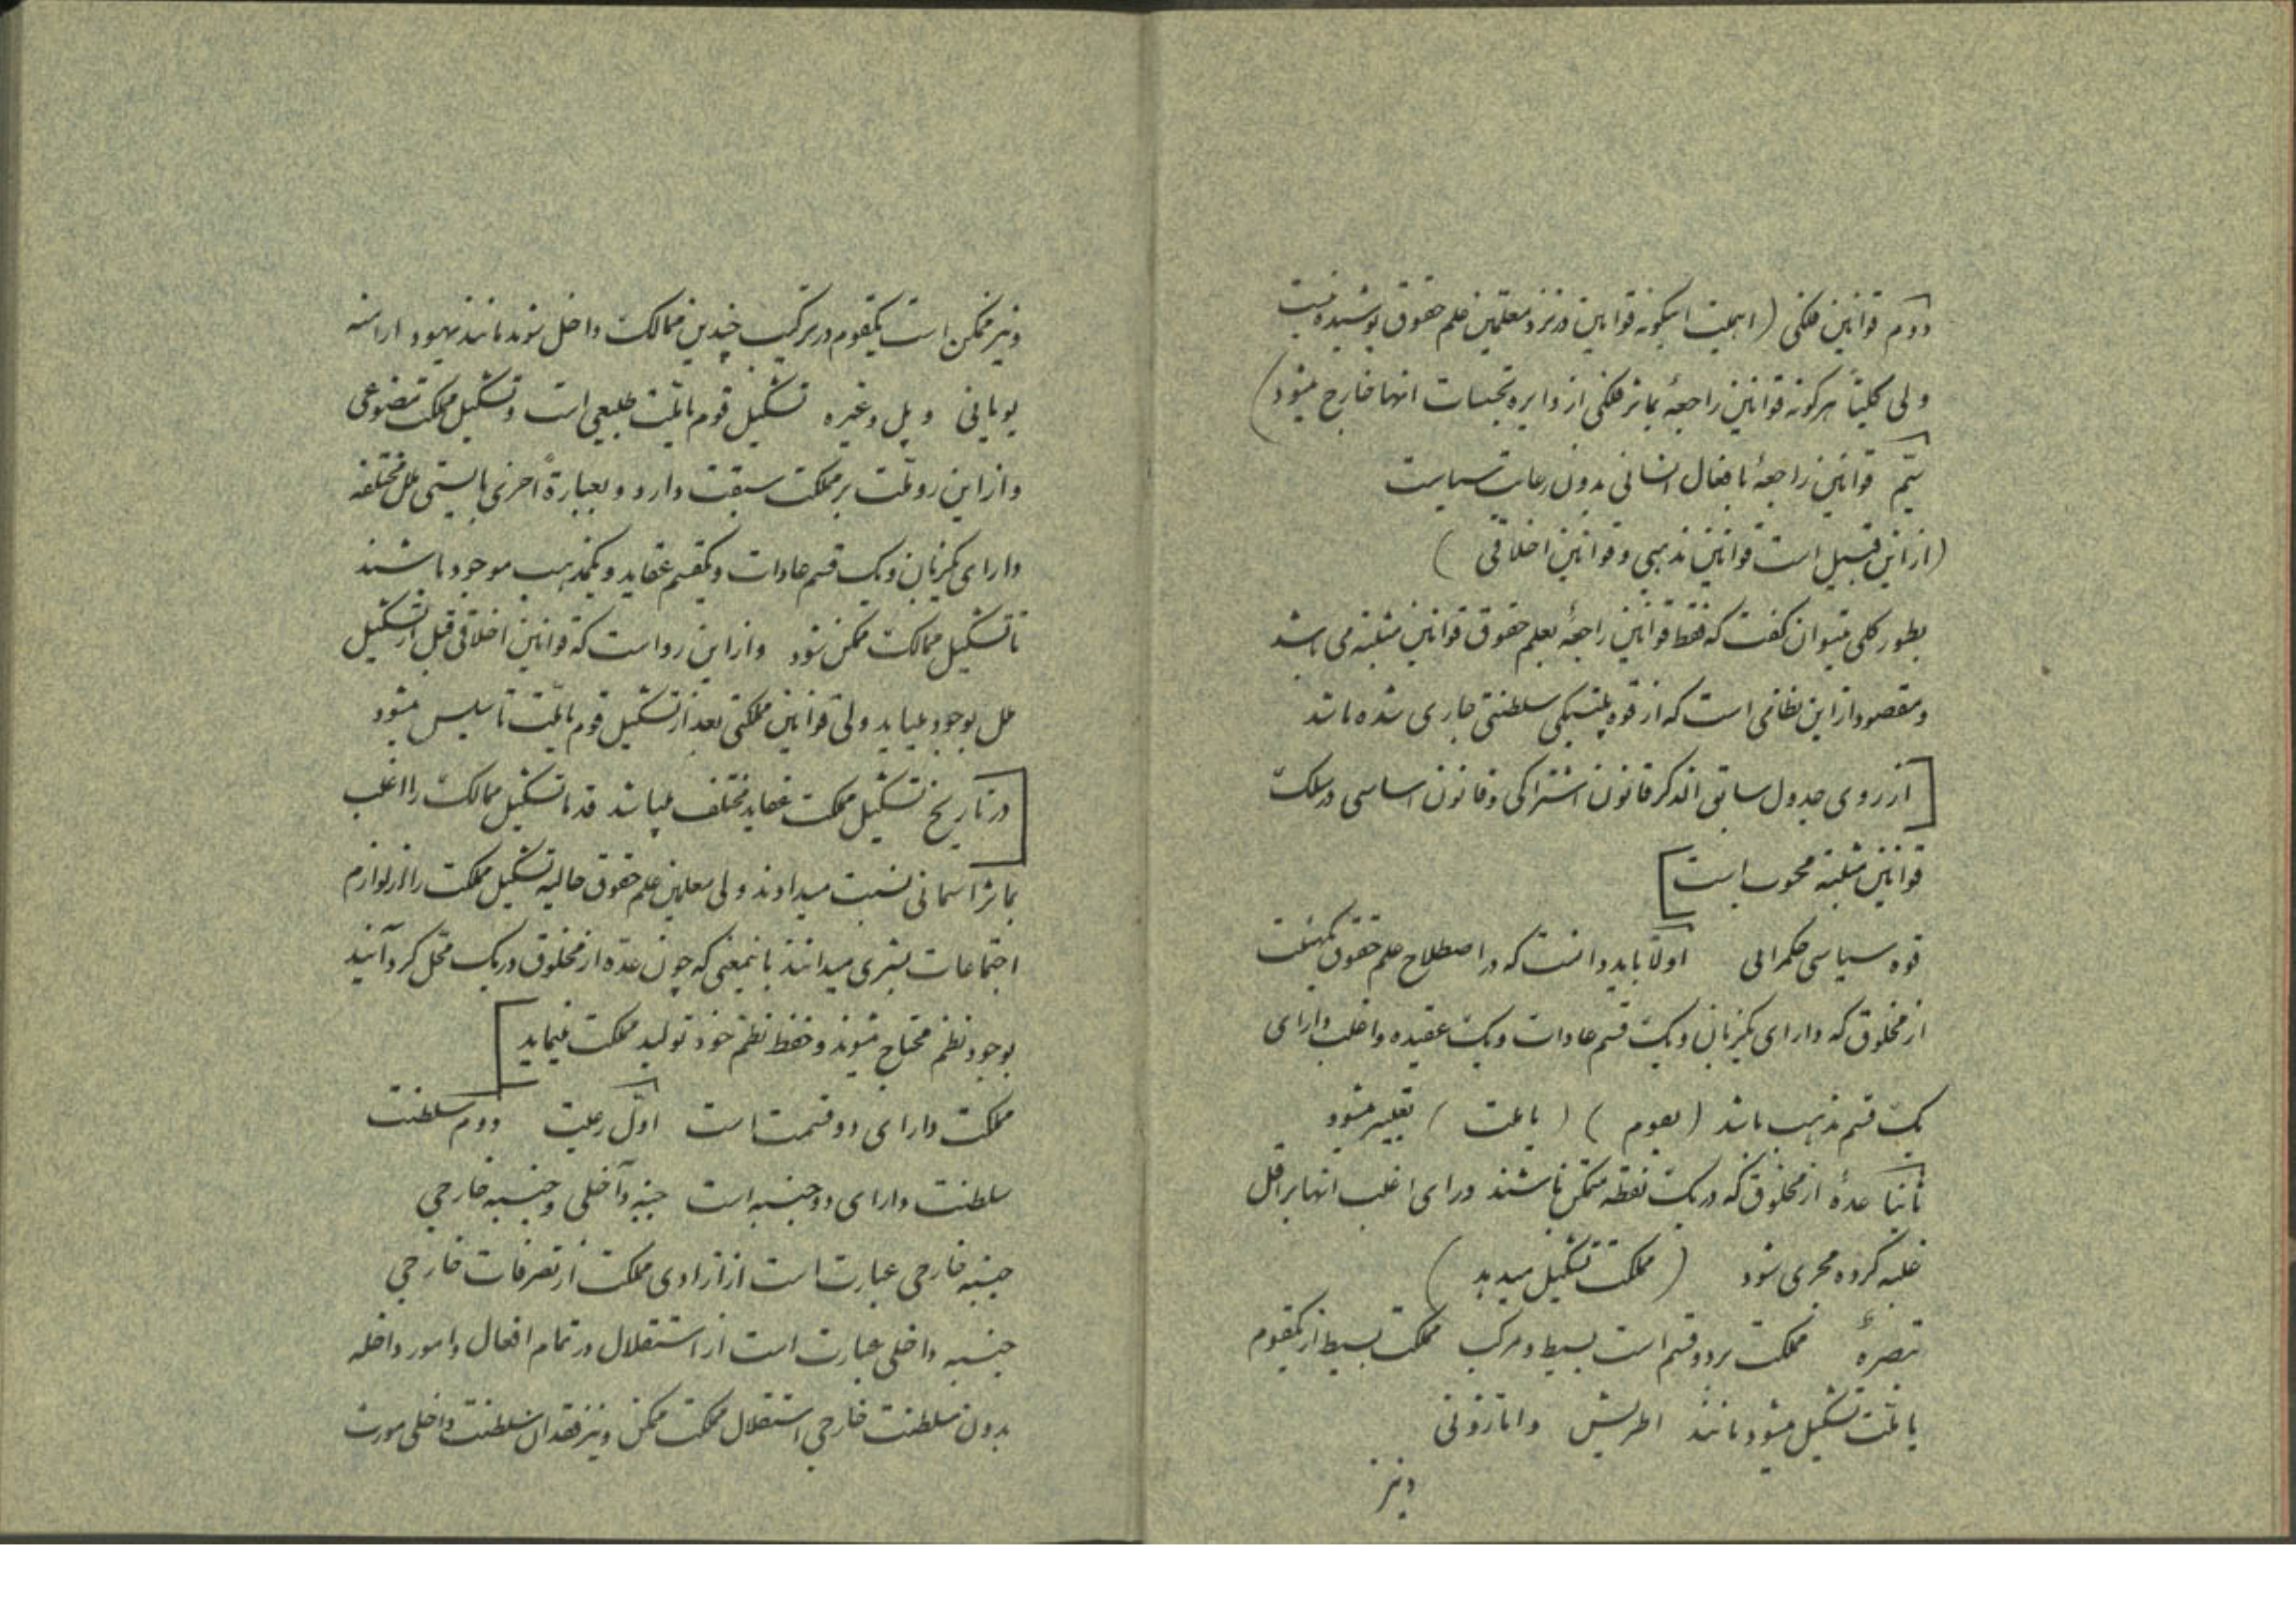 دوم قوانین فلکی (اهمیت اینگونه قوانین در نزد معلمین علم حقوق پوشیده نیست
ولی کلیتاً هرگونه قوانین راجعهٔ بمأثر فلکی از دایره تجسسات انها خارج میشود)
سیّم قوانین راجعهٔ بافعال انسانی بدون رعایت سیاست
(از این قبیل است قوانین مذهبی و قوانین اخلاقی)
بطور کلی میتوان گفت که فقط قوانین راجعهٔ بعلم حقوق قوانین مثبته می باشد
و مقصود از این نظامی است که از قوه پلتیکی سلطنتی جاری شده باشد
[از روی جدول سابق الذکر قانون اشتراکی و قانون اساسی در سلک
قوانین مثبته محسوب است]
قوه سیاسی حکمرانی اولاً باید دانست که در اصطلاح علم حقوق بهیئت
از مخلوق که دارای یکزبان و یک قسم عادات و یک عقیده و اغلب دارای
یک قسم مذهب باشد (بقوم) (یا ملت) تعبیر میشود
ثانیاً عدهٔ از مخلوق که در یک نقطه متمکن باشند و رای اغلب انها بر اقل
غلبه کرده مجری شود (مملکت تشکیل میدهد)
تبصرهٔ مملکت بر دو قسم است بسیط و مرکب مملکت بسیط از یکقوم
یا ملّت تشکیل میشود مانند اطریش و اماتزونی
و نیز
و نیز ممکن است یکقوم در ترکیب چندین ممالک داخل شوند مانند یهود ارامنه
یونانی و پل و غیره تشکیل قوم یا ملّت طبیعی است و تشکیل مملکت مصنوعی
و از این رو ملّت بر مملکت سبقت دارد و بعبارةً اخری بایستی ملل مختلفه
دارای یکزبان و یک قسم عادات و یکقسم عقاید و یکمذهب موجود باشند
تا تشکیل ممالک ممکن شود و از این رو است که قوانین اخلاقی قبل از تشکیل
ملل بوجود میاید ولی قوانین مملکتی بعد از تشکیل قوم یا ملّت تأسیس میشود
[در تاریخ تشکیل مملکت عقاید مختلف میباشد قدما تشکیل ممالک را اغلب
بمأثر اسمانی نسبت میدادند ولی معلمین علم حقوق حالیه تشکیل مملکت را از لوازم
اجتماعات بشری میدانند باینمعنی که چون عدّه از مخلوق در یک محل گرد آیند
بوجود نظم محتاج میشوند و حفظ نظم خود تولید مملکت مینماید]
مملکت دارای دو قسمت است اوّل رعیت دوم سلطنت
سلطنت دارای دو جنبه است جنبه داخلی و جنبه خارجی
جنبه خارجی عبارت است از ازادی مملکت از تصرفات خارجی
جنبه داخلی عبارت است از استقلال در تمام افعال و امور داخله
بدون سلطنت خارجی استقلال مملکت ممکن و نیز فقدان سلطنت داخلی مورث